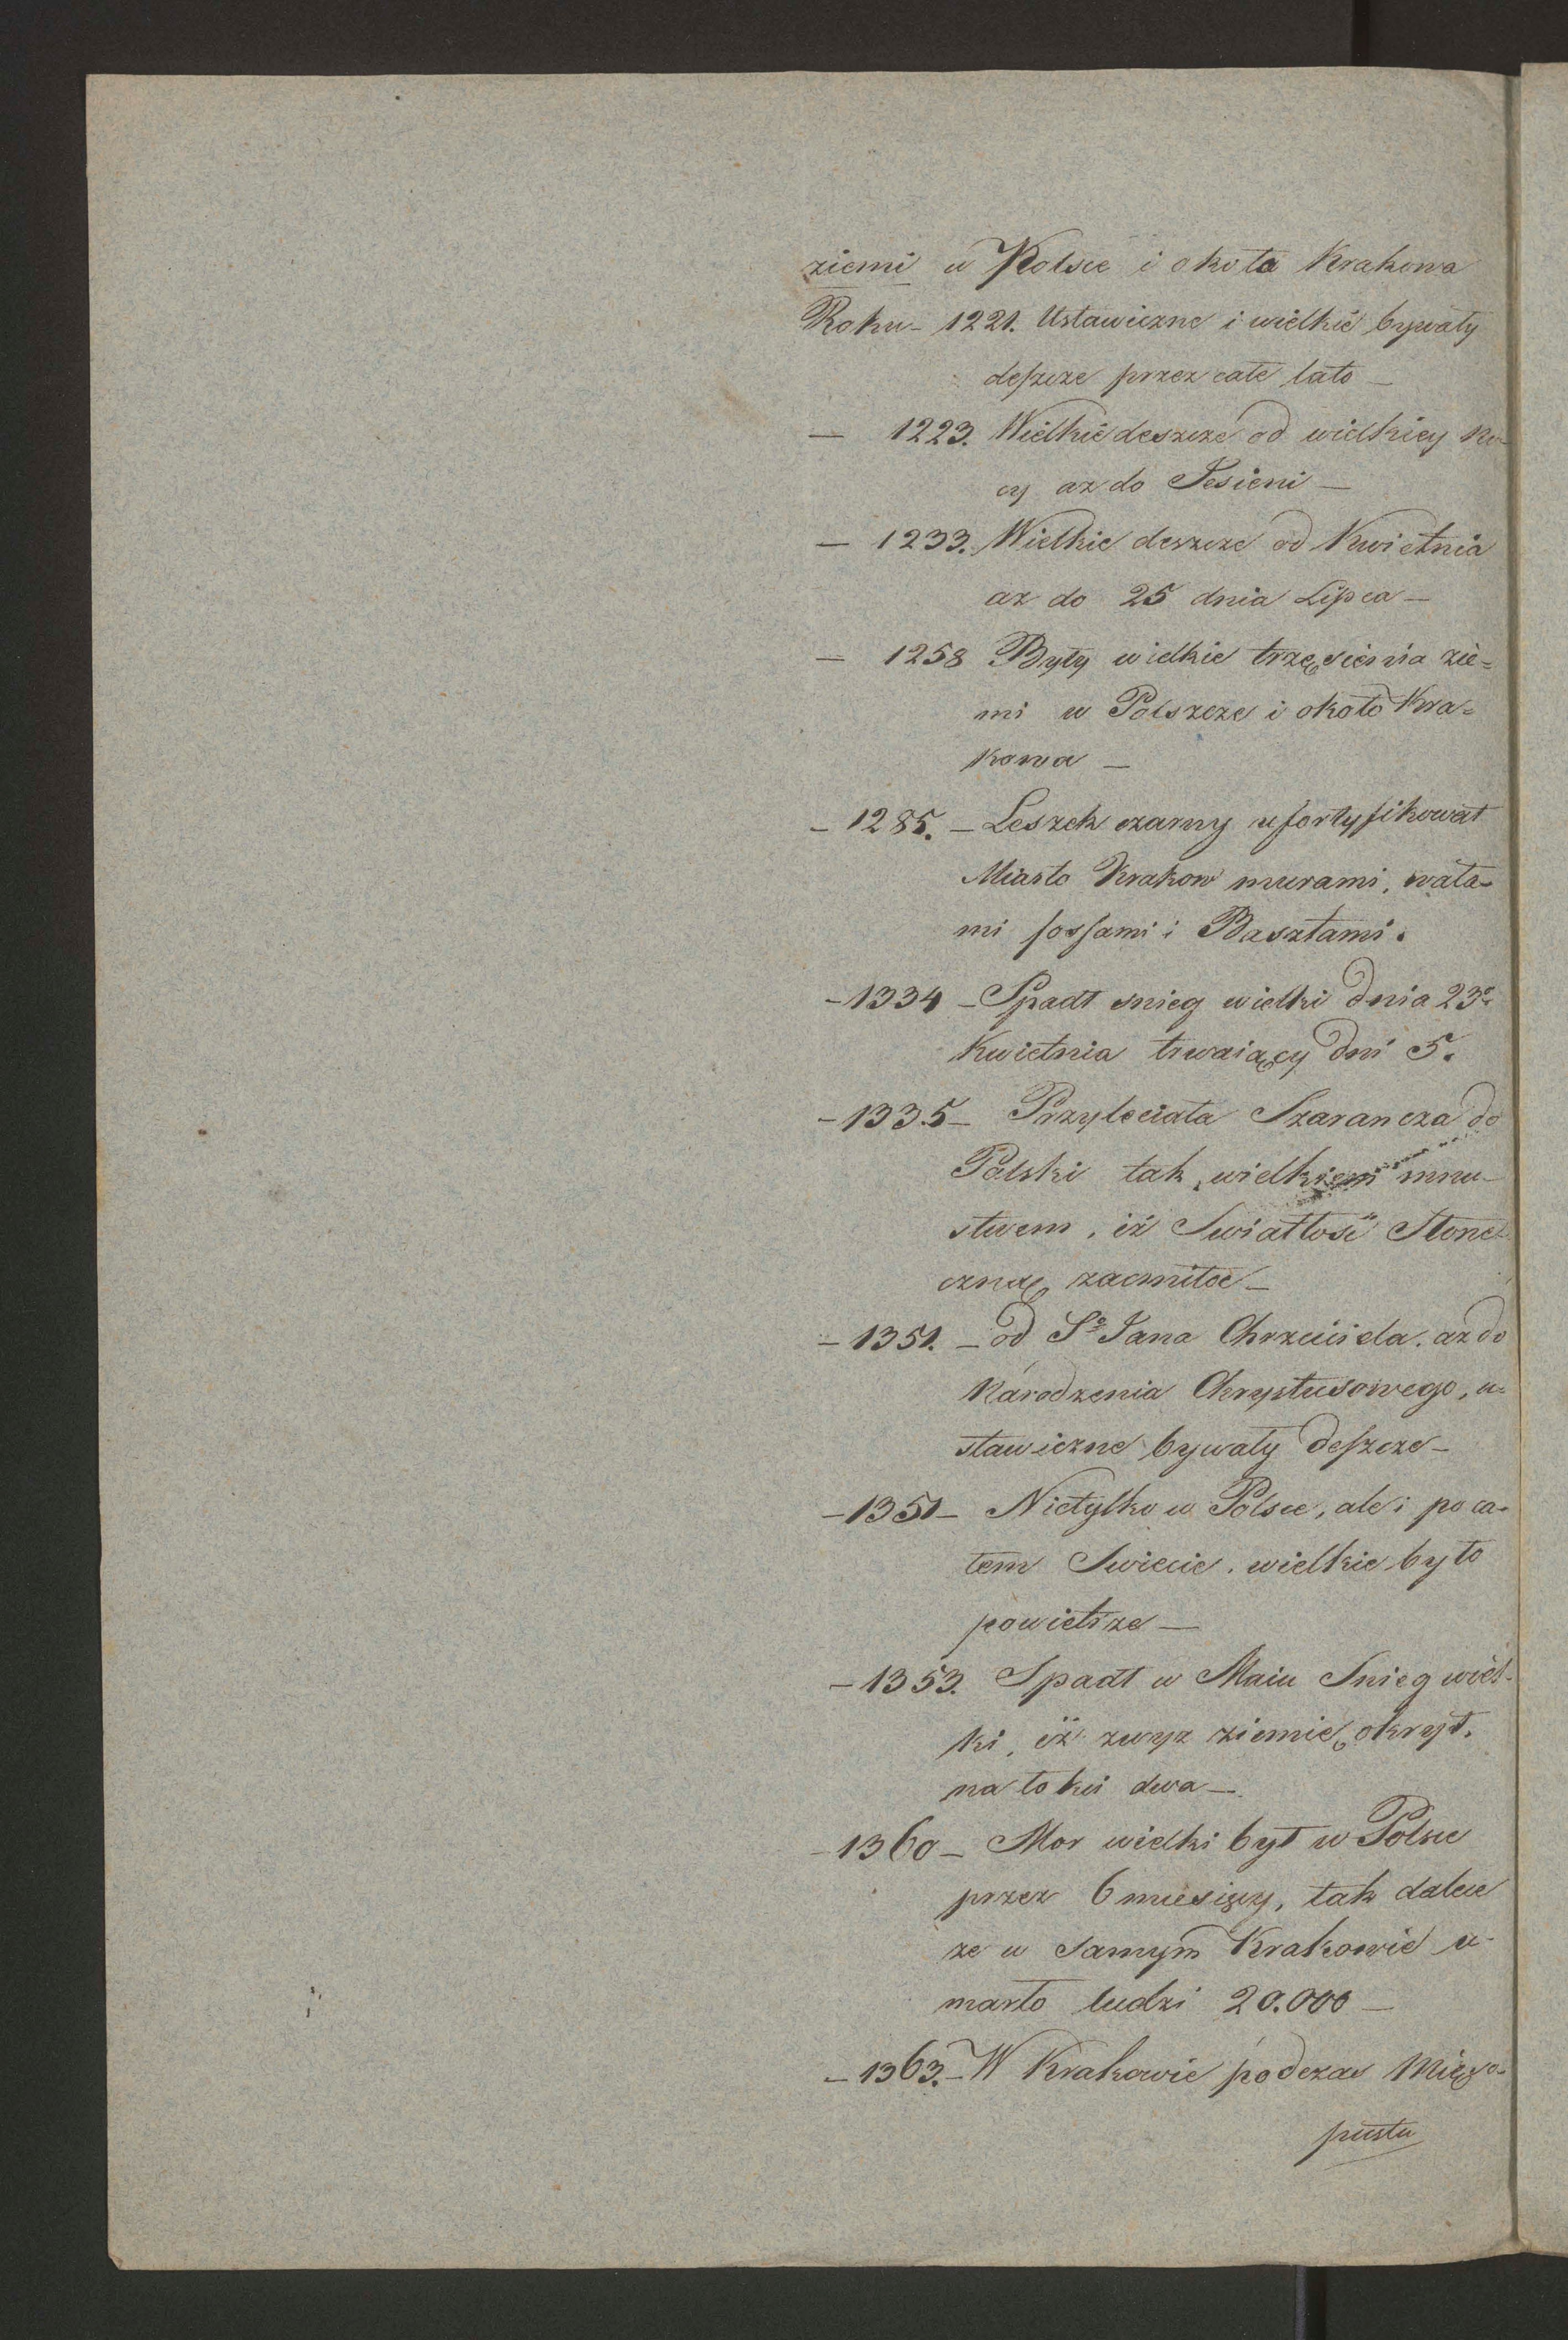 ziemi w Polsce i okoła Krakowa
Roku - 1221. Ustawiczne i wielkie bywały
deszcze przez całe lato —
— 1223. Wielkie deszcze od wielkiey No-
cy az do Jesieni —
— 1233. Wielkie deszcze od Kwietnia
az do 25 dnia Lipca —
— 1258 Były wielkie trzęsienia zie=
mi w Polszcze i około Kra=
kowa —
— 1285. — Leszek czarny ufortyfikował
Miasto Krakow murami, wała-
mi fossami i Basztami.
— 1334 — Spadł snieg wielki dnia 23º
Kwietnia trwaiący dni 5.
— 1335 — Przyleciała Szarancza do
Polski tak wielkiem mnu-
stwem, iż Swiatłość Słone-
czną zacmiłoe —
— 1351. — od Sº Jana Chrzciciela. az do
Narodzenia Chrystusowego, u=
stawiczne bywały deszcze —
— 1351 — Nietylko w Polsce, ale i po ca-
łem Swiecie, wielkie było
powietrze —
— 1353. Spadł w Maiu Snieg wiel-
ki, iż zwyz ziemię okrył,
na łokci dwa —
— 1360 — Mor wielki był w Polsce
przez 6 miesięcy, tak dalece
ze w samym Krakowie u-
marło ludzi 20.000 —
— 1363. — W Krakowie podczas Mięso-
pustu